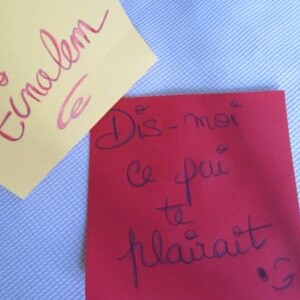 tinalem
Dis-moi
ce qui
te
plairait